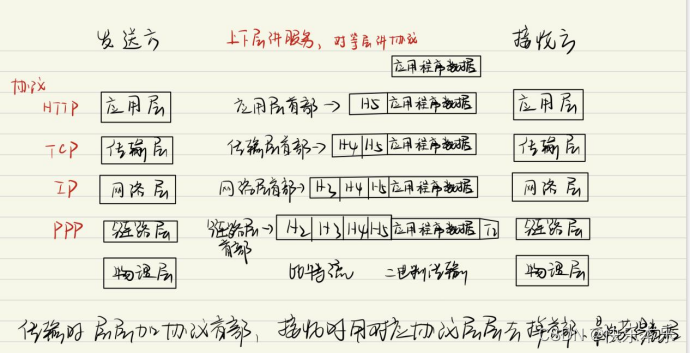 发送方 上下层件服务, 对等层件协议 接收方
应用程序数据
协议
HTTP 应用层 应用层首部→ H5 应用程序数据 应用层
TCP 传输层 传输层首部→ H4 H5 应用程序数据 传输层
IP 网络层 网络层首部→ H3 H4 H5 应用程序数据 网络层
PPP 链路层 链路层首部→ H2 H3 H4 H5 应用程序数据 T2 链路层
物理层 比特流 二进制传输 物理层
传输时层层加协议首部, 接收时用对应协议层层去掉首部,
CSDN